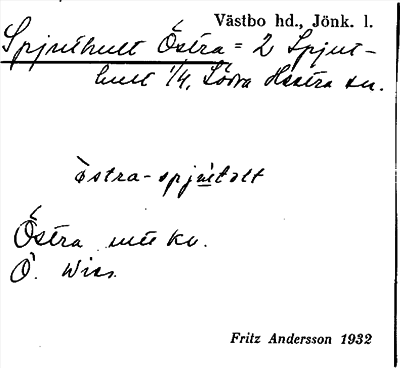 Västbo hd., Jönk. l.
Spjuthult Östra = 2 Spjut-
hult 1/4, Södra Hestra sn.
östra-spjutolt
Östra
Ö.
Fritz Andersson 1932